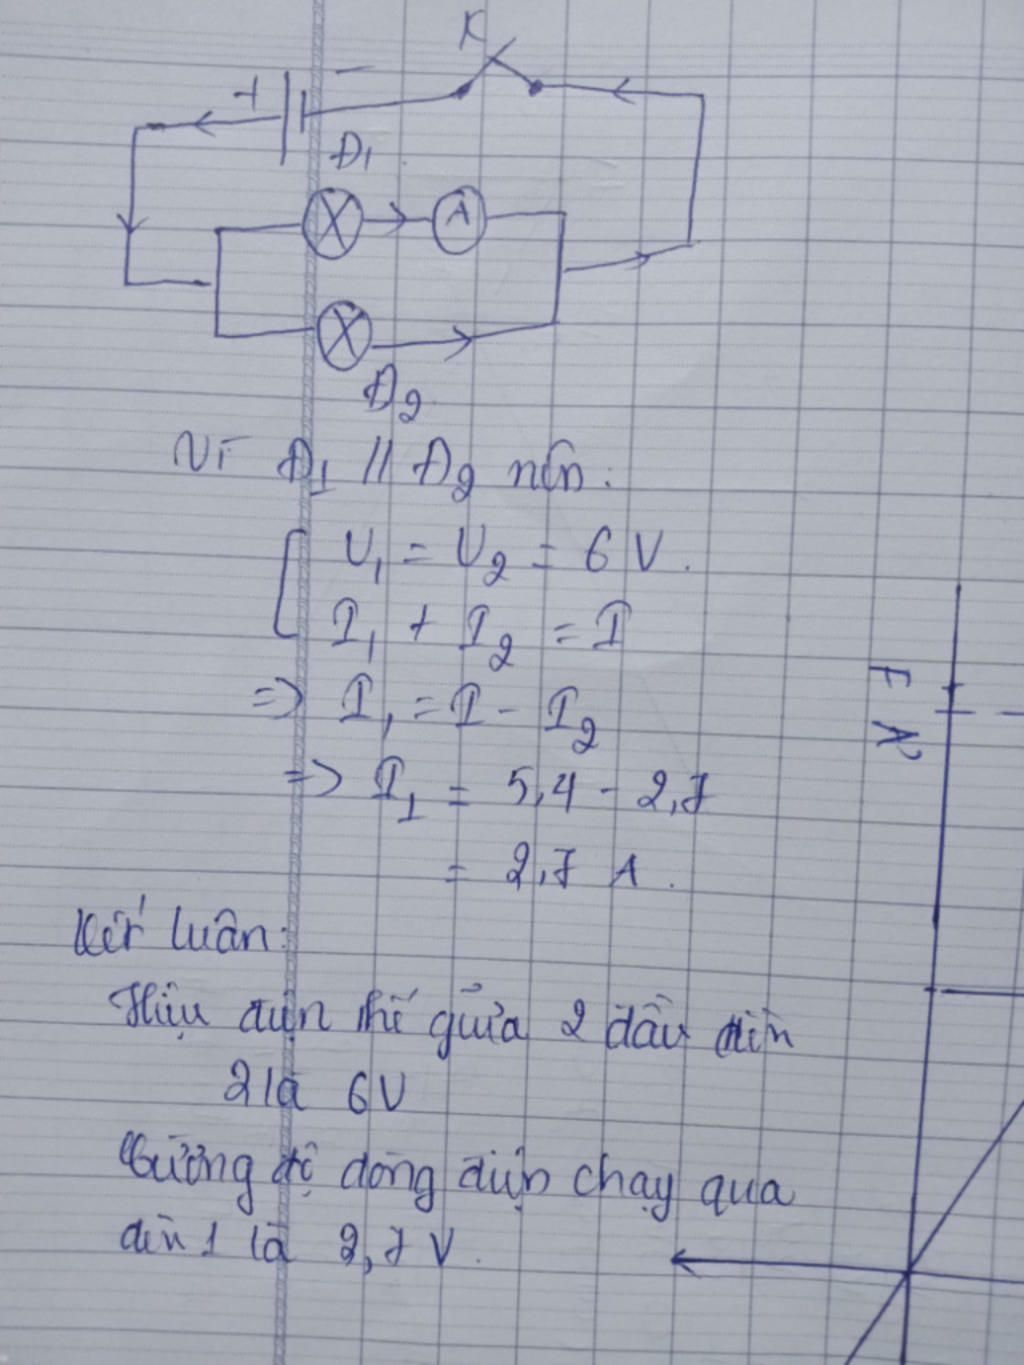 K
+ -
Đ1
A
Đ2
Vì Đ1 // Đ2 nên:
U1 = U2 = 6 V.
I1 + I2 = I
=> I1 = I - I2
=> I1 = 5,4 - 2,7
= 2,7 A.
Kết luân:
Hiệu điện thế giữa 2 đầu đèn
2 là 6V
Cường độ dòng điện chạy qua
đèn 1 là 2,7 V.